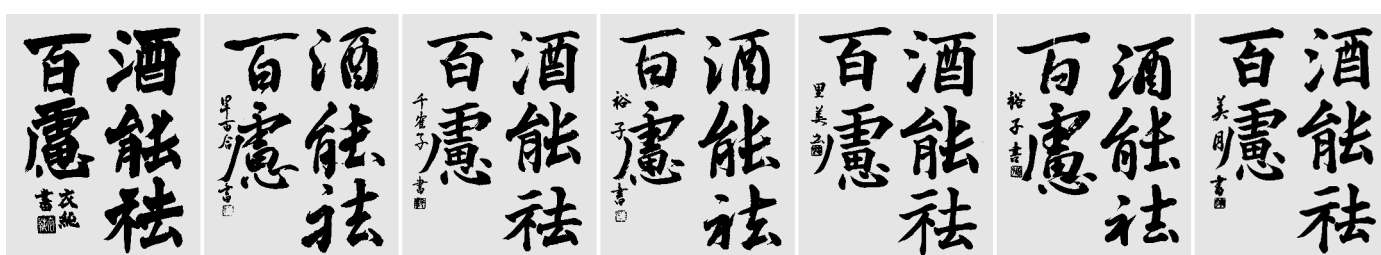 酒能祛
百慮
茂純
書
酒能祛
百慮
早百合
書
酒能祛
百慮
千奎子
書
酒能祛
百慮
裕子
書
酒能祛
百慮
里美
酒能祛
百慮
裕子書
酒能祛
百慮
美月
書